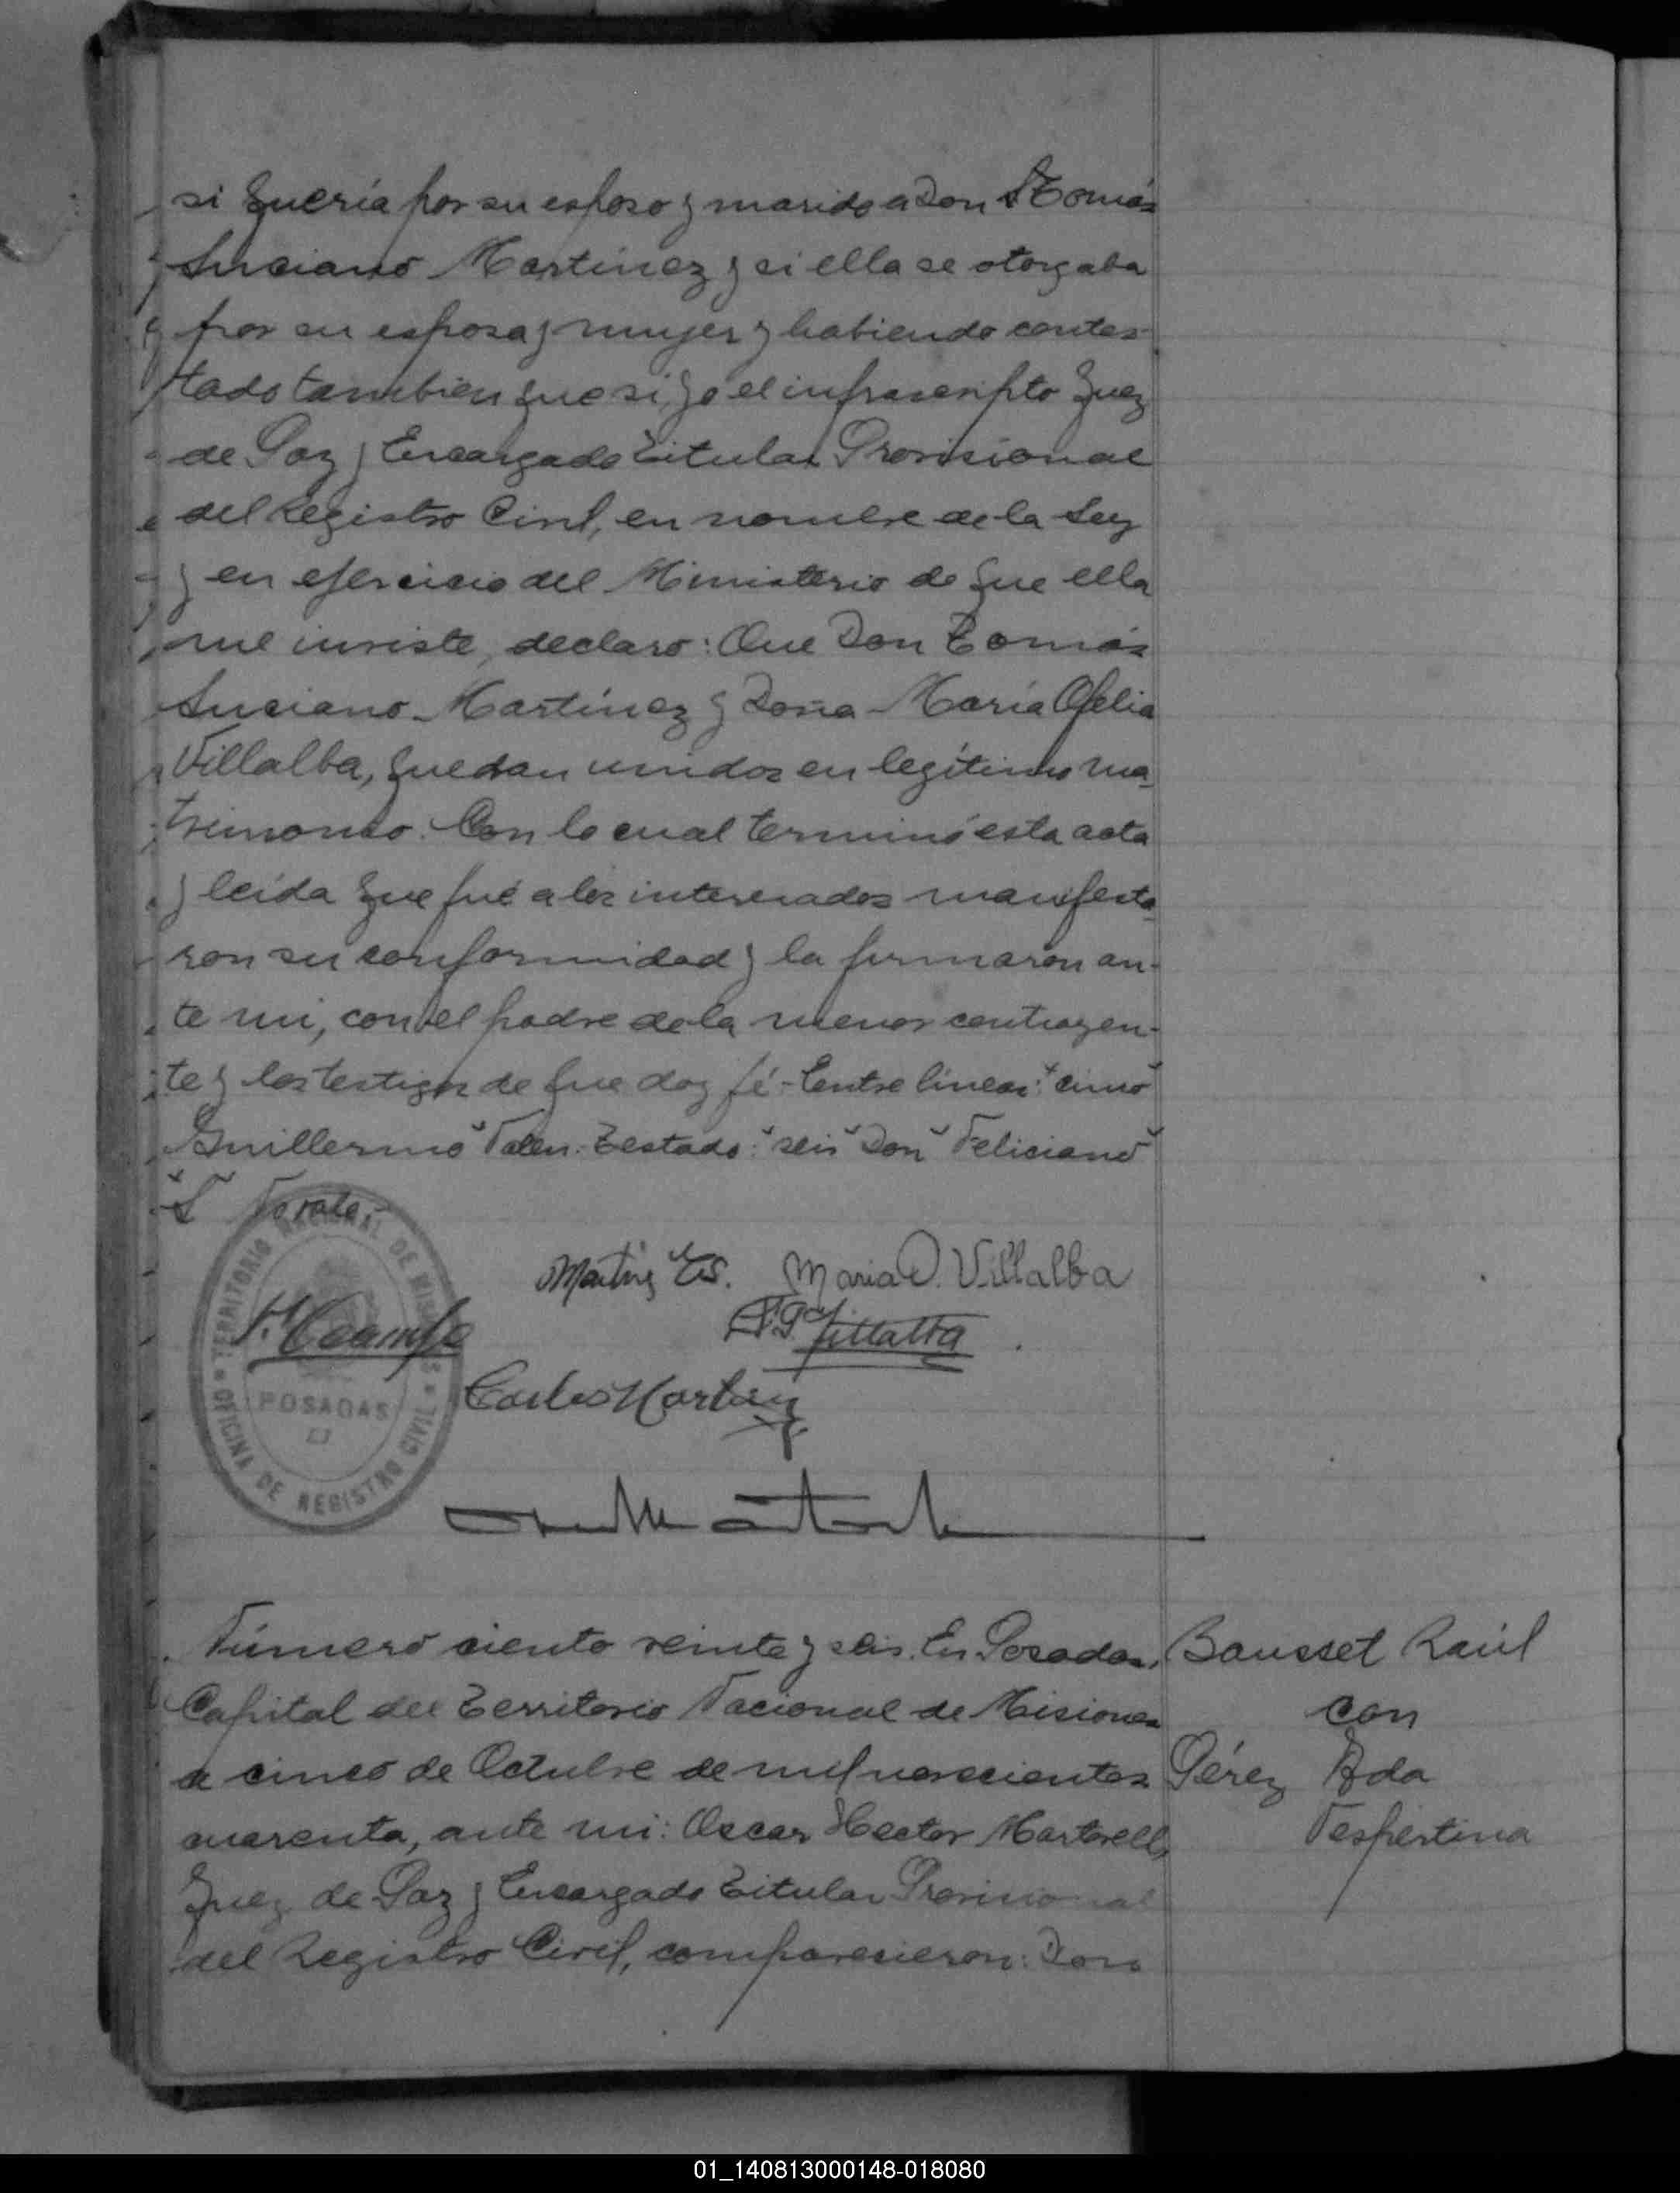 si quería por su esposo y marido a Don Tomás
Luciano Martínez y si ella se otorgaba
por su esposa y mujer y habiendo contes-
tado tambien que si, yo el infrascripto Juez
de Paz y Encargado Titular Provisional
del Registro Civil, en nombre de la Ley
y en ejercicio del Ministerio de que ella
me inviste, declaro: Que Don Tomás
Luciano Martínez y Doña María Ofelia
Villalba, quedan unidos en legítimo ma-
trimonio. Con lo cual terminó esta acta
y leída que fué a los interesados manifesta-
ron su conformidad y la firmaron an-
te mi, con el padre de la menor contrayen-
te y los testigos de que doy fé.- Entre líneas: "cinco"
Guillermo" Valen. Testado: "seis" Don" Feliciano"
"L" No vale.
Martinez Maria O. Villalba
Villalba
Carlos
TERRITORIO NACIONAL DE MISIONES
POSADAS
OFICINA DE REGISTRO CIVIL
Número ciento veinte y seis. En Posadas,
Capital del Territorio Nacional de Misiones
a cinco de Octubre de mil novecientos
cuarenta, ante mi: Oscar Hector Martorell,
Juez de Paz y Encargado Titular Provisional
del Registro Civil, comparecieron: Don
Bausset Raúl
con
Pérez Ada
Vespertina
01_140813000148-018080